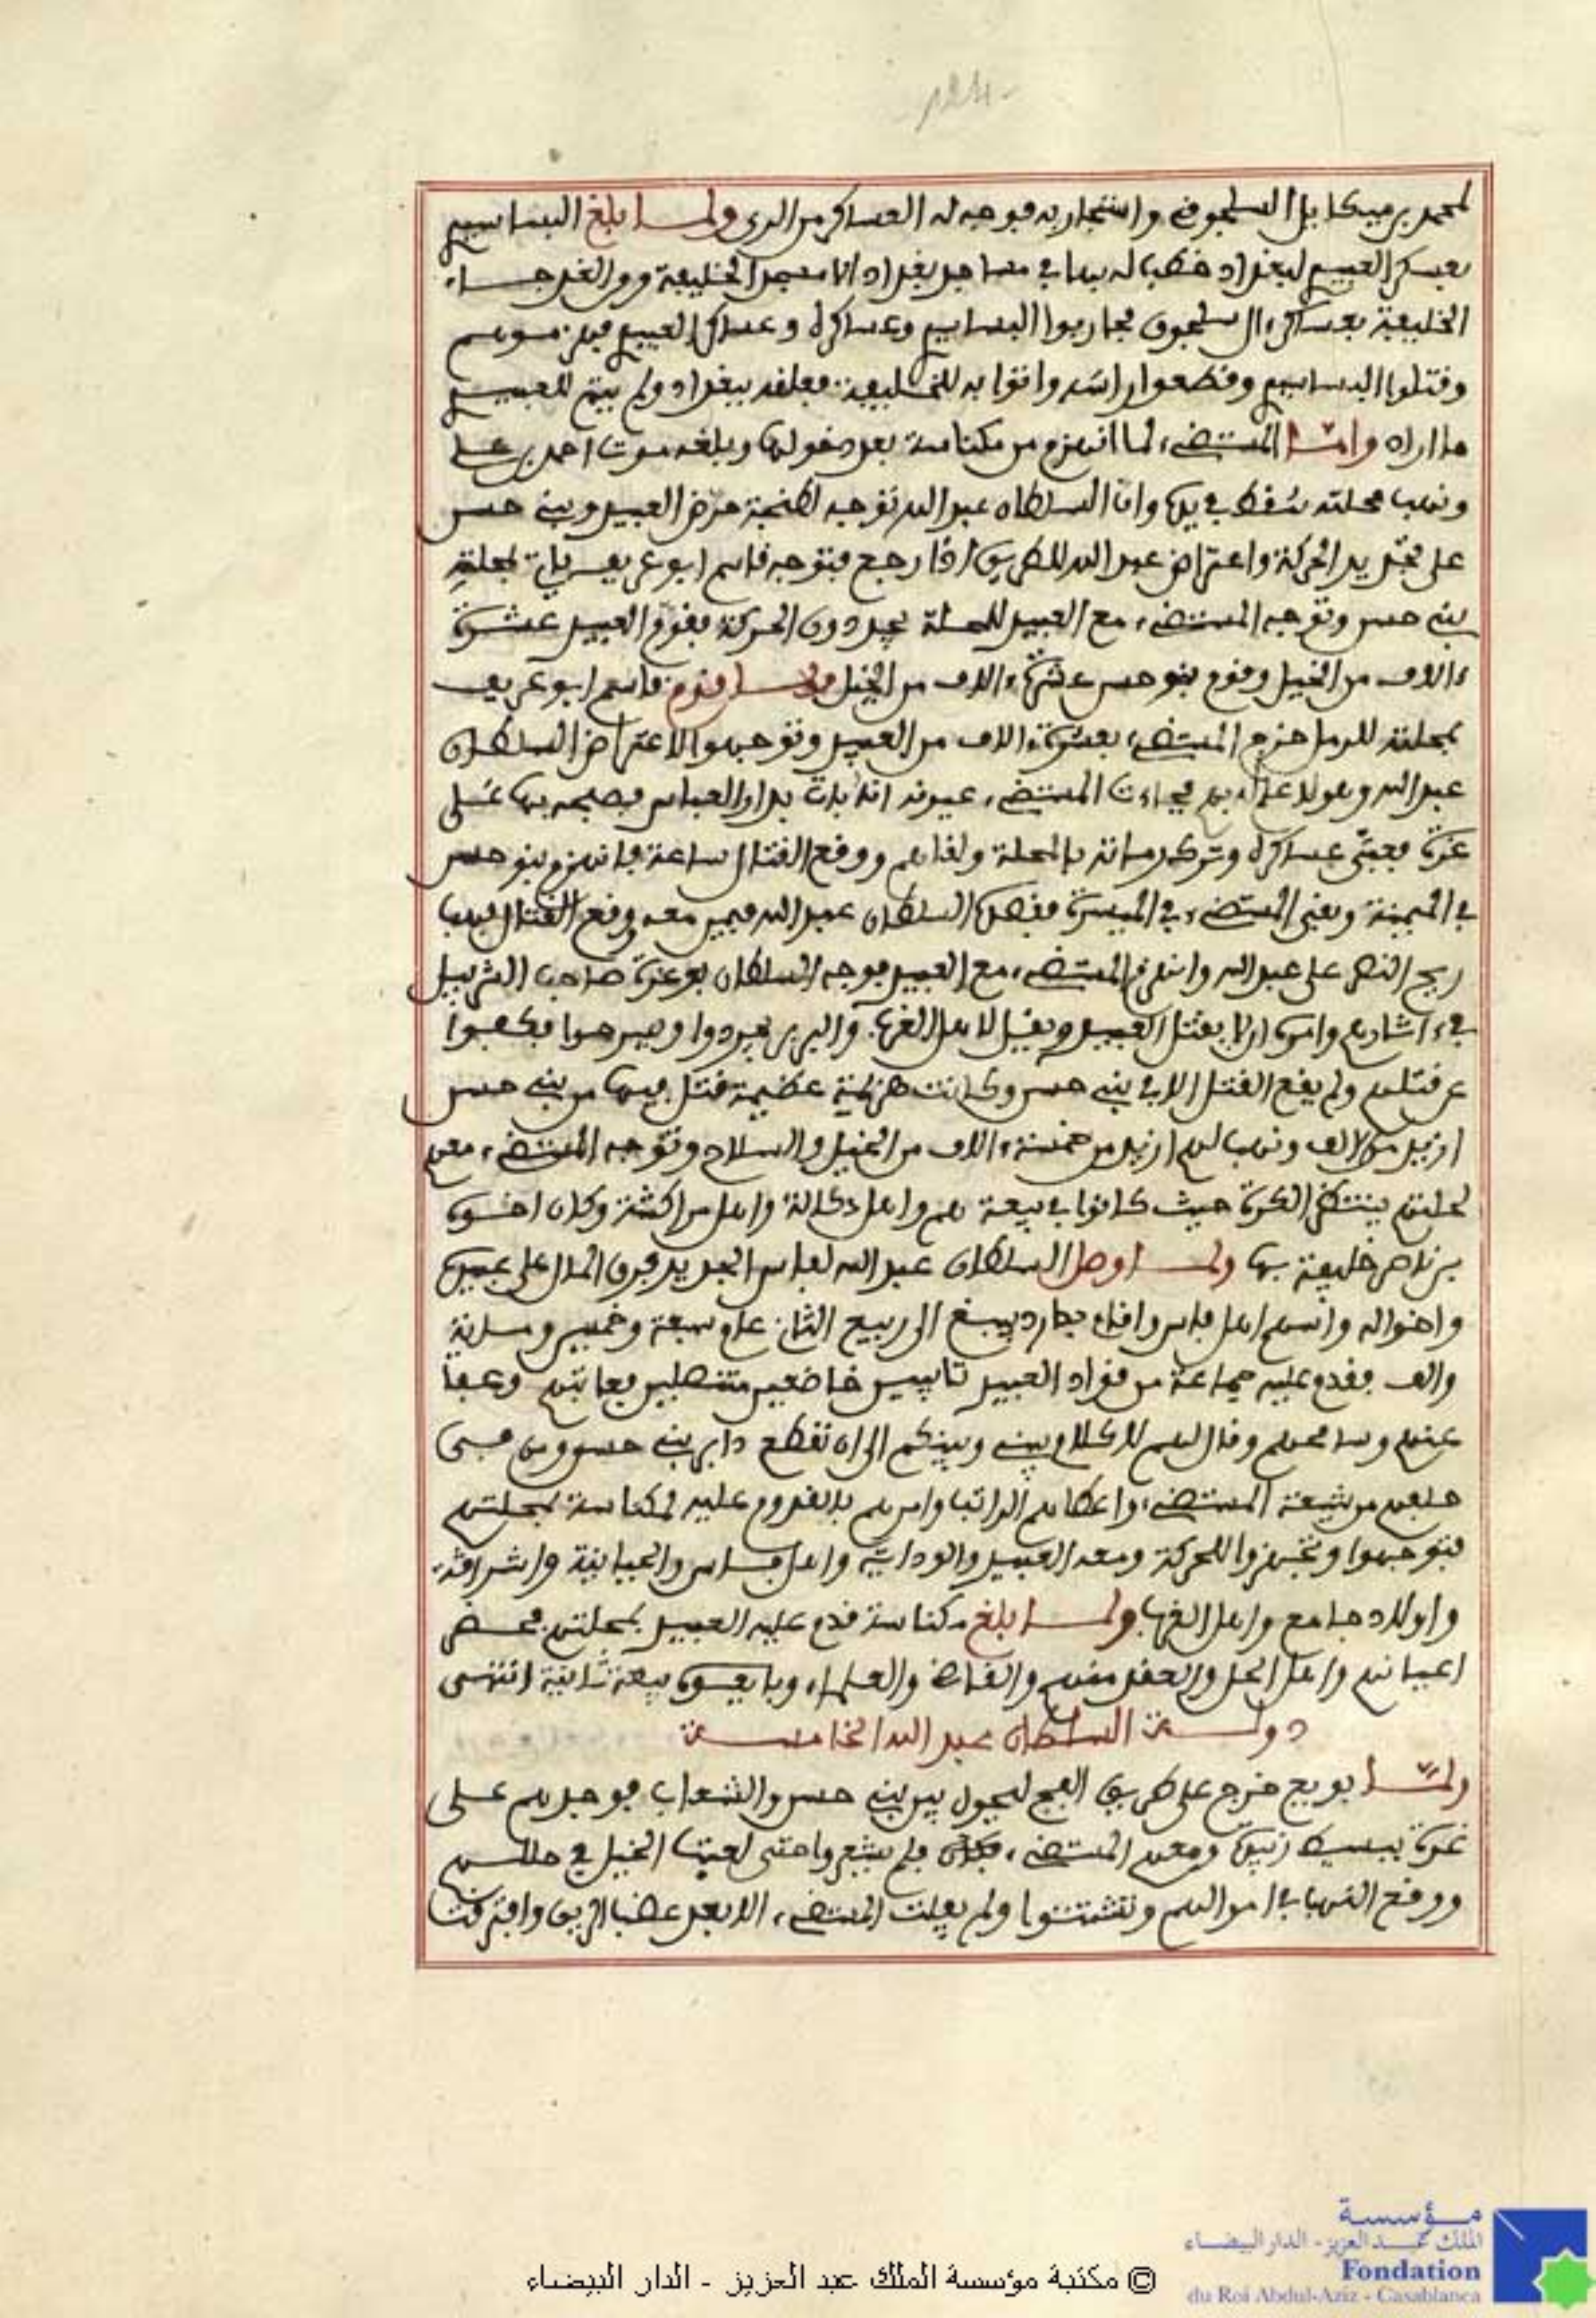 لمحمد بن ميكايل السلجوفي واستجار به فوجه له العساكر من الري ولما بلغ البساسيري
بعسكر العبيدي لبغداد خطب له بها في مساجد بغداد الا مسجد الخليفة ومن الغد جاء
الخليفة بعساكر ءال سلجوق فحاربوا البساسيري وعساكره وعساكر العبيدي فهزموهم
وقتلوا البساسيري وقطعوا راسه واتوا به للخليفة فعلقه ببغداد ولم يتم للعبيدي
ما اراد واما المستضيء لما انهزم من مكناسة بعد دخولها وبلغه موت احمد بن علي
ونهب محلته سقط في يده وان السلطان عبد الله توجه لطنجة حرض العبيد وبني حسن
على تجديد الحركة واعتراض عبد الله للطريق اذا رجع فتوجه قاسم ابو عريف ياتي بمحلة
بني حسن وتوجه المستضيء مع العبيد للمحلة يجددون الحركة فقوم العبيد عشرة
ءالاف من الخيل وقوم بنو حسن عشرة ءالاف من الخيل ولما قدم قاسم ابو عريف
بمحلته للرمل خرج المستضيء بعشرة ءالاف من العبيد وتوجهوا لاعتراض السلطان
عبد الله وهؤلاء على اثرهم فجاءت المستضيء عيونه انه بات بدار العباس فصبحه بها على
غرة فعبى عساكره وترك رماته بالمحلة ولقاهم ووقع القتال ساعة فانهزم بنو حسن
في الميمنة وبقي المستضيء في الميسرة فقصده السلطان عبد الله فيمن معه ووقع القتال فهب
ريح النصر على عبد الله وانهزم المستضيء مع العبيد فوجه السلطان بوعزة صاحب الشربيل
في ءاثارهم وامره ان لا يقتل العبيد ويقيل لاهل الغرب والبربر يجردوا ويسرحوا فكفوا
عن قتلهم ولم يقع القتل الا في بني حسن وكانت هزيمة عظيمة قتل فيها من بني حسن
ازيد من الالف ونهب لهم ازيد من خمسة ءالاف من الخيل والسلاح وتوجه المستضيء معهم
لحلتهم ينتظر الكرة حيث كانوا في بيعته هم واهل دكالة واهل مراكشة وكان اخوه
بن ناصر خليفة بها ولما وصل السلطان عبد الله لفاس الجديد فرق المال على عبيده
واخواله واسهم اهل فاس واقام بدار دبيبغ الى ربيع الثاني عام سبعة وخمسين وماية
والف فقدم عليه جماعة من قواد العبيد تايبين خاضعين متنصلين فعاتبهم وعفا
عنهم وسامحهم وقال لهم لا كلام بيني وبينكم الى ان نقطع دابر بني حسن ومن في
حلفهم من شيعة المستضيء واعطاهم الراتب وامرهم بالقدوم عليه لمكناسة بمحلتهم
فتوجهوا وتجهزوا للحركة ومعه العبيد والودايا واهل فاس والحياينة واشراقة
واولاد جامع واهل الغرب ولما بلغ مكناسة قدم عليه العبيد بمحلتهم فحضر
اعيانهم واهل الحل والعقد منهم والقاضي والعلماء وبايعوه بيعة ثانية انتهى
دولة السلطان عبد الله الخامسة
ولما بويع خرج على طريق الفج ليحول بين بني حسن والشعاب فوجدهم على
غرة ببسيط زبيدة ومعهم المستضيء فلم يشعروا حتى لعبت الخيل في حللهم
ووقع النهب في اموالهم وتشتتوا ولم يفلت المستضيء الا بعد عضب الريق وافترقت
© مكتبة مؤسسة الملك عبد العزيز - الدار البيضاء
مؤسسة
الملك محمد العزيز - الدار البيضاء
Fondation
du Roi Abdul-Aziz - Casablanca